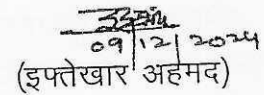 09/12/2024
(इफ्तेखार अहमद)